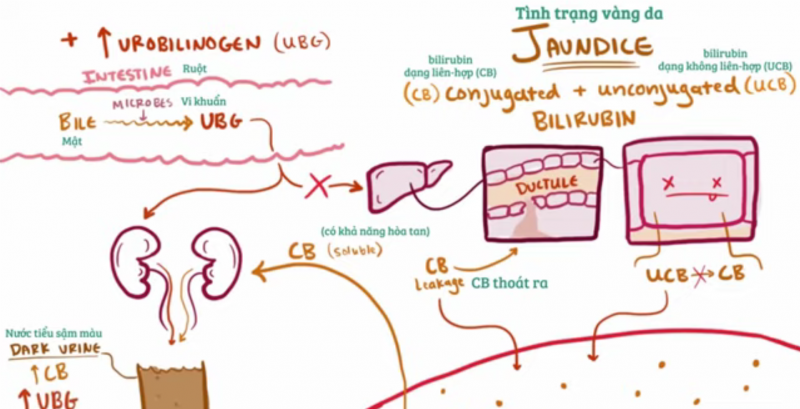 + ↑ UROBILINOGEN (UBG)
INTESTINE Ruột
MICROBES Vi khuẩn
BILE → UBG
Mật
Tình trạng vàng da
JAUNDICE
bilirubin
dạng liên-hợp (CB)
bilirubin
dạng không liên-hợp (UCB)
(CB) conjugated + unconjugated (UCB)
BILIRUBIN
DUCTULE
(có khả năng hòa tan)
CB (soluble)
CB
Leakage CB thoát ra
UCB → CB
Nước tiểu sậm màu
DARK URINE
↑ CB
↑ UBG